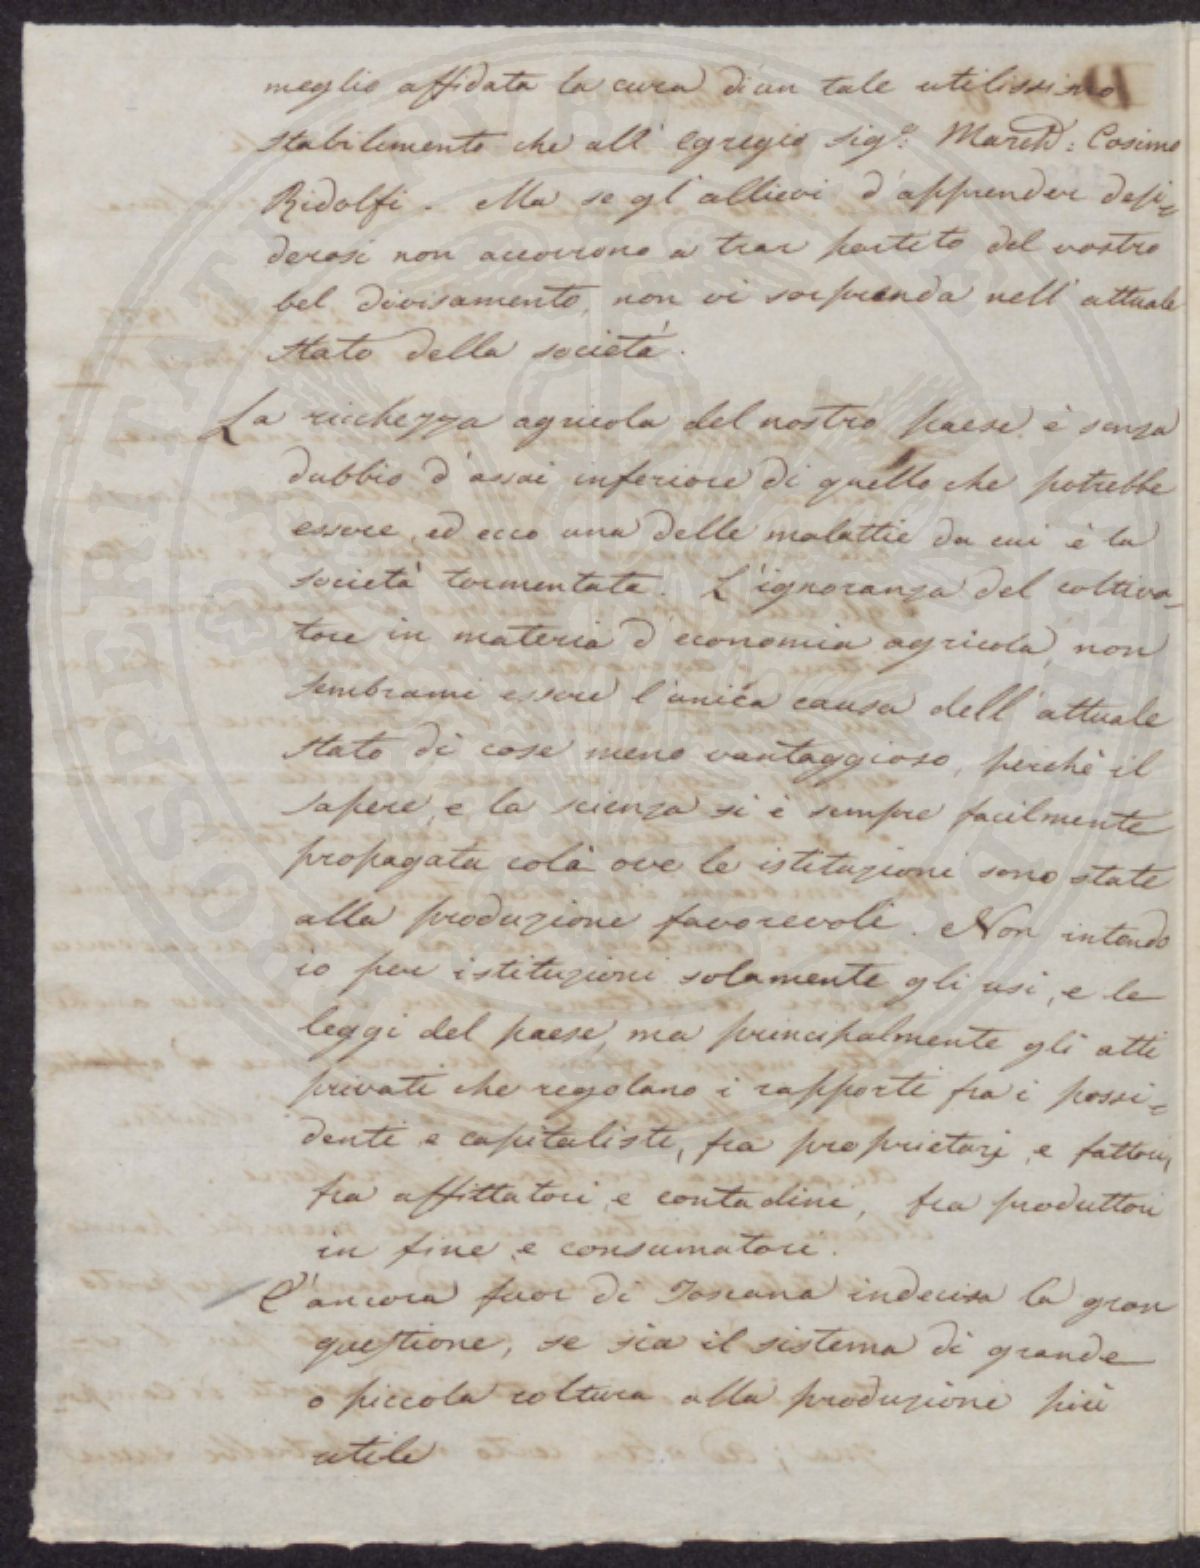 meglio affidata la cura d'un tale utilissimo
stabilimento che all' Egregio Sig.e March: Cosimo
Ridolfi. Ma se gl' allievi d'apprender desi=
derosi non accorrono a trar partito del vostro
bel divisamento, non vi sorprenda nell' attuale
stato della società.
La richezza agricola del nostro paese è senza
dubbio d'assai inferiore di quello che potrebbe
essere, ed ecco una delle malattie da cui è la
società tormentata. L'ignoranza del coltiva=
tore in materia d'economia agricola, non
sembrami essere l'unica causa dell' attuale
stato di cose meno vantaggioso, perchè il
sapere, e la scienza si è sempre facilmente
propagata colà ove le istituzioni sono state
alla produzione favorevoli. Non intendo
io per istituzioni solamente gli usi, e le
leggi del paese, ma principalmente gli atti
privati che regolano i rapporti fra i possi=
denti e capitalisti, fra proprietarj, e fattori,
fra affittatori e contadini, fra produttori
in fine e consumatori.
È ancora fuor di Toscana indecisa la gran
questione, se sia il sistema di grande
o piccola coltura alla produzione più
utile